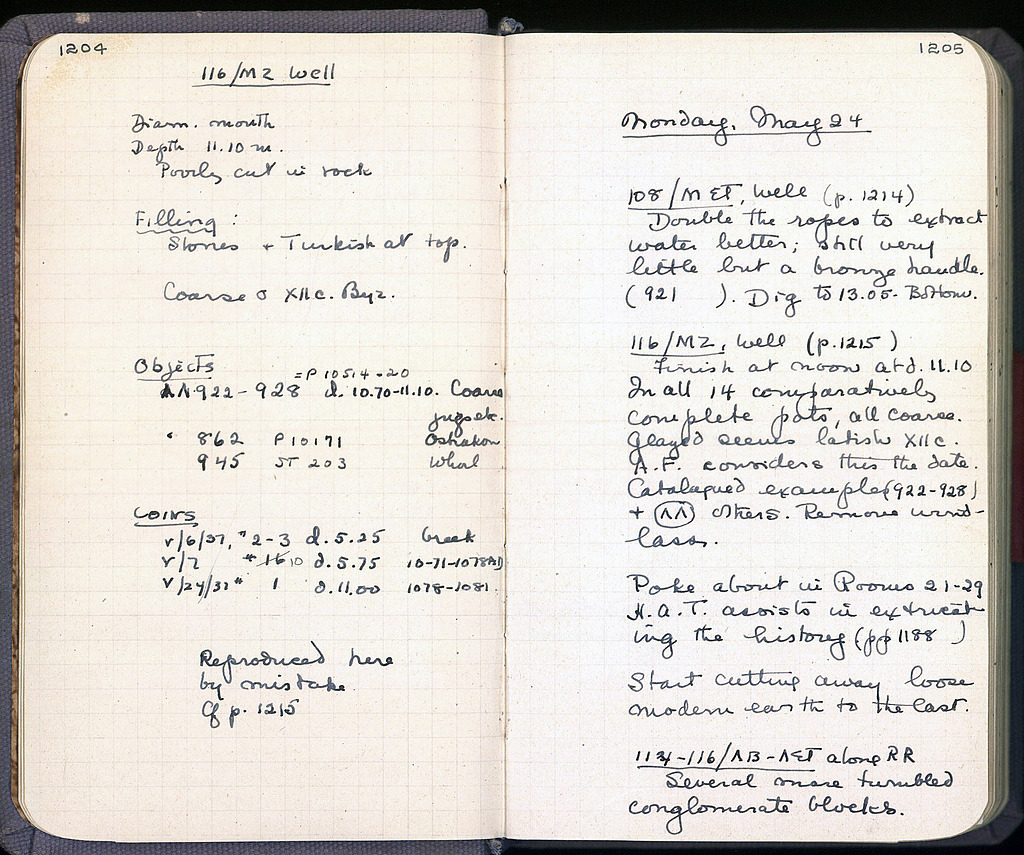 1204
116/ΜΖ Well
Diam. mouth
Depth 11.10 m.
Poorly cut in rock
Filling :
Stones + Turkish at top.
Coarse XII c. Byz.
Objects
= P 10514-20
ΛΛ 922-928 d. 10.70-11.10. Coarse
jugs etc.
" 862 P 10171 Ostrakon
945 ST 203 Whorl
Coins
V/6/37, # 2-3 d. 5.25 Greek
V/7 # 10 d. 5.75 10-71-1078 AD
V/24/37 # 1 d. 11.00 1078-1081
Reproduced here
by mistake
Cf p. 1215
1205
Monday, May 24
108/Μ ΣΤ, Well (p. 1214)
Double the ropes to extract
water better; still very
little but a bronze handle.
(921 ). Dig to 13.05. Bottom.
116/ΜΖ, Well (p. 1215)
Finish at noon at d. 11.10
In all 14 comparatively
complete pots, all coarse.
Glazed seems latish XII c.
A.F. considers this the date.
Catalogued examples (922-928)
+ ΛΛ others. Remove wind-
lass.
Poke about in Rooms 21-29
H.A.T. assists in extricat-
ing the history (pp 1188 )
Start cutting away loose
modern earth to the east.
114-116/ΛΒ-ΛΣΤ along RR
Several more tumbled
conglomerate blocks.